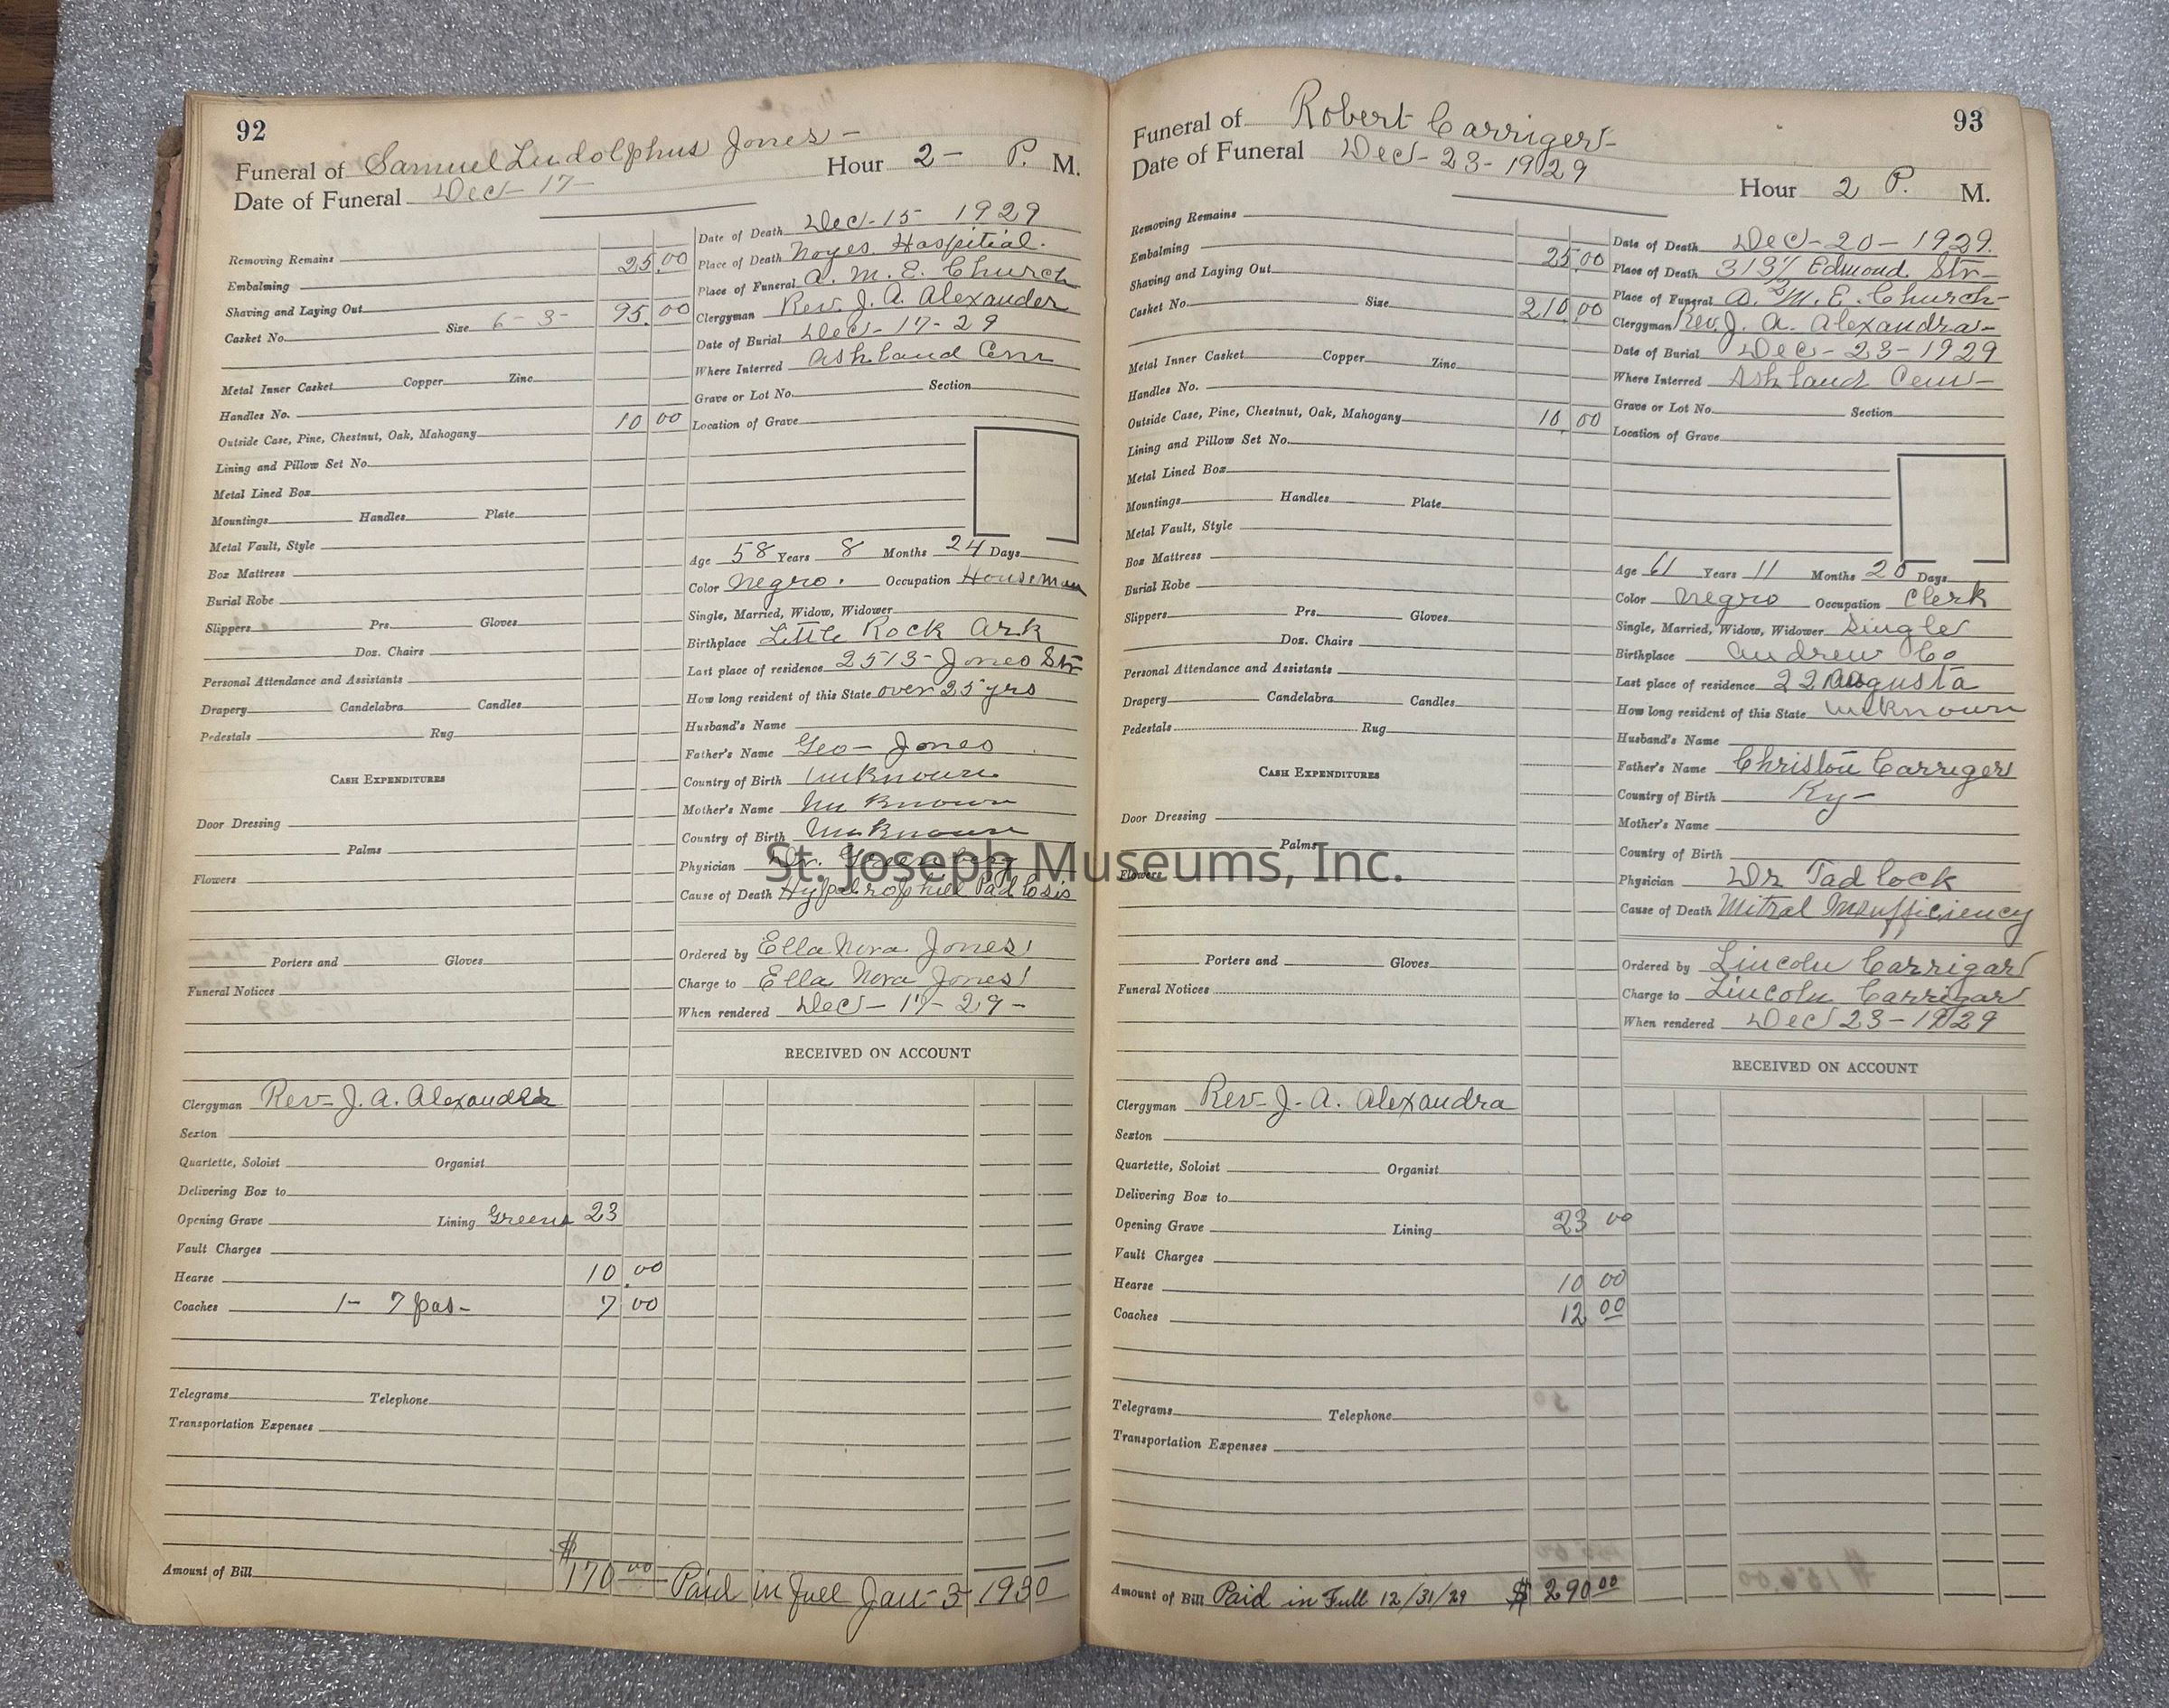 92
Funeral of Samuel Ludolphus Jones -
Date of Funeral Dec - 17 - Hour 2 - P. M.
Removing Remains
Embalming 25.00
Shaving and Laying Out
Casket No. Size 6 - 3 - 95.00
Metal Inner Casket Copper Zinc
Handles No.
Outside Case, Pine, Chestnut, Oak, Mahogany 10 00
Lining and Pillow Set No.
Metal Lined Box
Mountings Handles Plate
Metal Vault, Style
Box Mattress
Burial Robe
Slippers Prs. Gloves
Doz. Chairs
Personal Attendance and Assistants
Drapery Candelabra Candles
Pedestals Rug
CASH EXPENDITURES
Door Dressing
Palms
Flowers
Porters and Gloves
Funeral Notices
Clergyman Rev - J. A. Alexander
Sexton
Quartette, Soloist Organist
Delivering Box to
Opening Grave Lining Greens 23
Vault Charges
Hearse 10.00
Coaches 1 - 7 pas - 7 00
Telegrams Telephone
Transportation Expenses
Amount of Bill $170 00 - Paid in full Jan - 3 - 1930
Date of Death Dec - 15 - 1929
Place of Death Noyes Hospitial.
Place of Funeral A. M. E. Church
Clergyman Rev. J. A. Alexander
Date of Burial Dec - 17 - 29
Where Interred Ashland Cem
Grave or Lot No. Section
Location of Grave
Age 58 Years 8 Months 24 Days
Color Negro. Occupation Houseman
Single, Married, Widow, Widower
Birthplace Little Rock Ark
Last place of residence 2513 - Jones Str
How long resident of this State over 25 yrs
Husband's Name
Father's Name Geo - Jones
Country of Birth Unknown
Mother's Name Unknown
Country of Birth Unknown
Physician Dr.
Cause of Death
Ordered by Ella Nora Jones
Charge to Ella Nora Jones
When rendered Dec - 17 - 29 -
RECEIVED ON ACCOUNT
93
Funeral of Robert Carriger -
Date of Funeral Dec - 23 - 1929
Hour 2 P. M.
Removing Remains
Embalming 25.00
Shaving and Laying Out
Casket No. Size 210.00
Metal Inner Casket Copper Zinc
Handles No.
Outside Case, Pine, Chestnut, Oak, Mahogany 10.00
Lining and Pillow Set No.
Metal Lined Box
Mountings Handles Plate
Metal Vault, Style
Box Mattress
Burial Robe
Slippers Prs. Gloves
Doz. Chairs
Personal Attendance and Assistants
Drapery Candelabra Candles
Pedestals Rug
CASH EXPENDITURES
Door Dressing
Palms
Flowers
Porters and Gloves
Funeral Notices
Clergyman Rev - J. A. Alexandra
Sexton
Quartette, Soloist Organist
Delivering Box to
Opening Grave Lining 23 00
Vault Charges
Hearse 10 00
Coaches 12 00
Telegrams Telephone
Transportation Expenses
Amount of Bill Paid in Full 12/31/29 $ 290 00
Date of Death Dec - 20 - 1929.
Place of Death Edmond Str -
Place of Funeral A. M. E. Church -
Clergyman Rev. J. A. Alexandra -
Date of Burial Dec - 23 - 1929
Where Interred Ashland Cem -
Grave or Lot No. Section
Location of Grave
Age 61 Years 11 Months 20 Days
Color Negro Occupation Clerk
Single, Married, Widow, Widower Single
Birthplace Andrew Co
Last place of residence Augusta
How long resident of this State Unknown
Husband's Name
Father's Name Carriger
Country of Birth Ky -
Mother's Name
Country of Birth
Physician Dr Tadlock
Cause of Death Mitral Insufficiency
Ordered by Lincoln Carrigar
Charge to Lincoln Carrigar
When rendered Dec 23 - 1929
RECEIVED ON ACCOUNT
St. Joseph Museums, Inc.